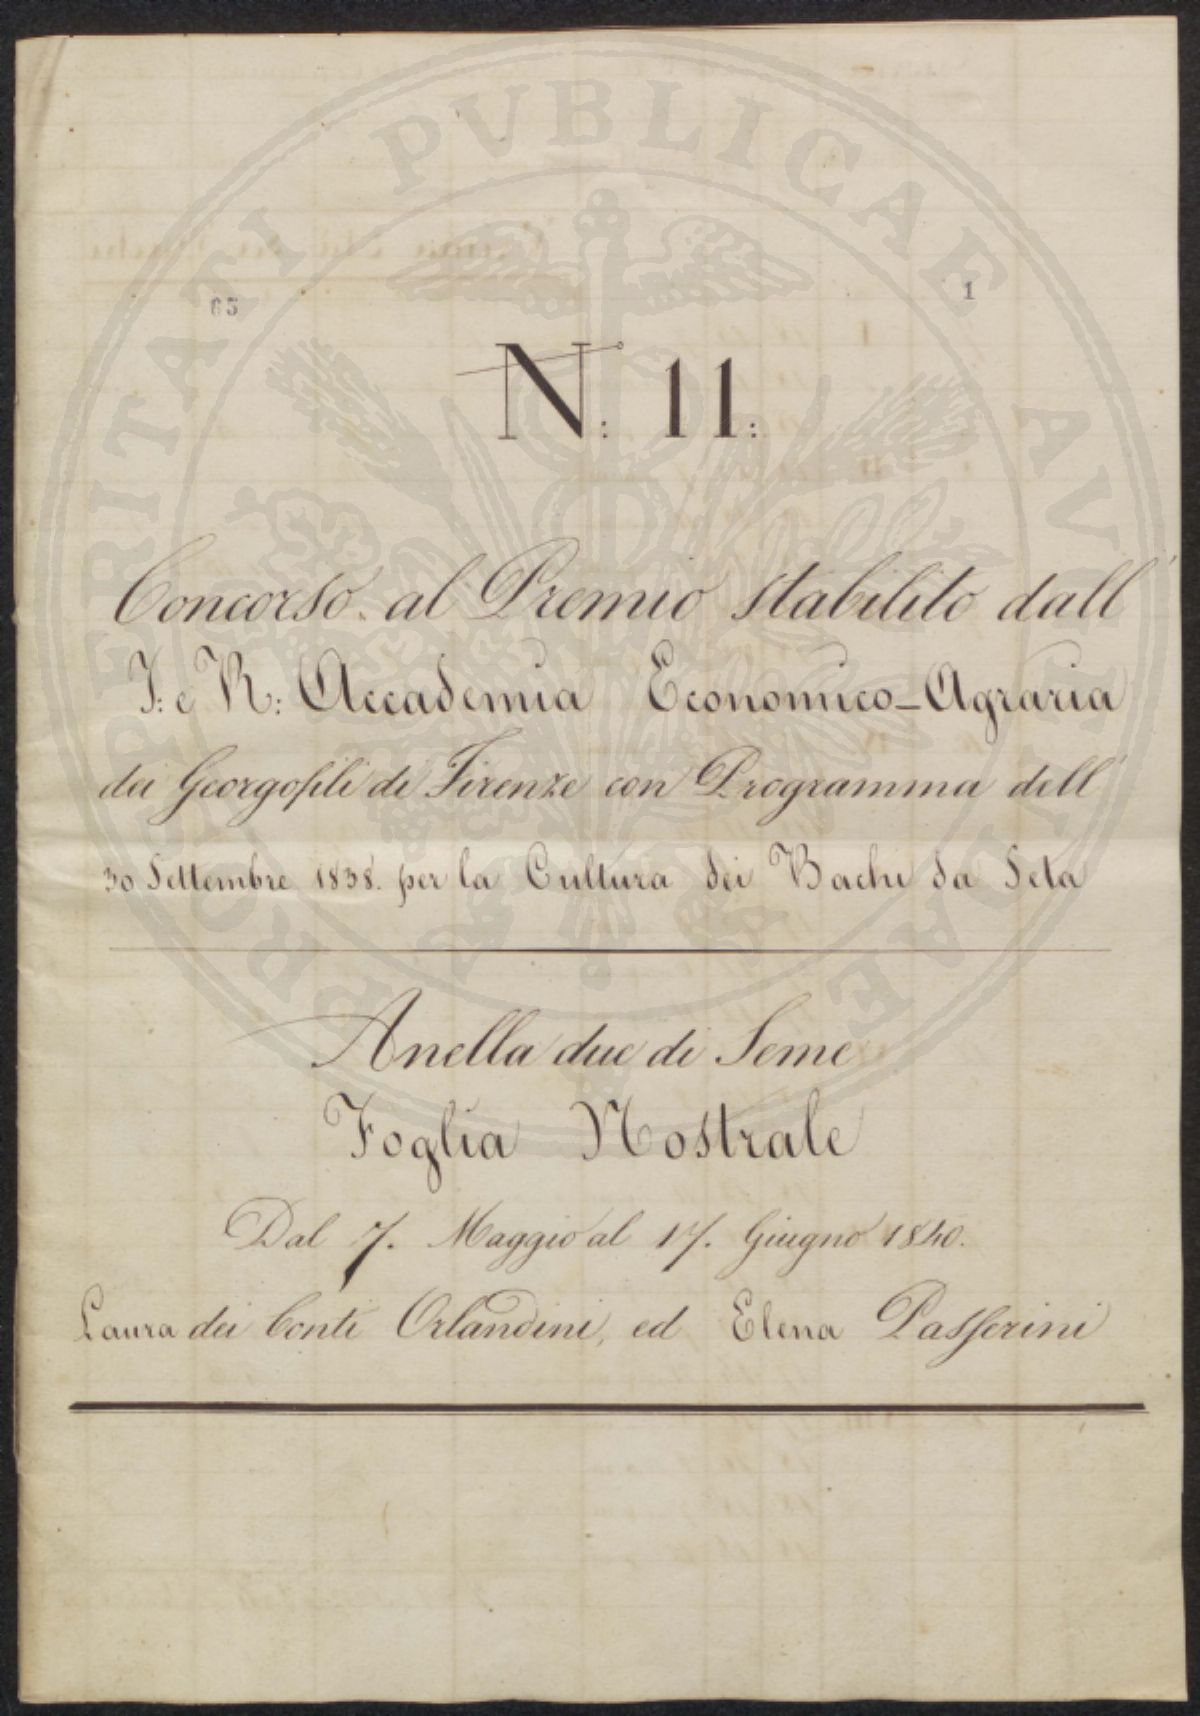 PROSPERITATI PUBLICAE AUGENDAE
65
1
N: 11:
Concorso al Premio stabilito dall'
I: e R: Accademia Economico-Agraria
dei Georgofili di Firenze con Programma dell'
30 Settembre 1838. per la Cultura dei Bachi da Seta
Anella due di Seme
Foglia Nostrale
Dal 7. Maggio al 17. Giugno 1840.
Laura dei Conti Orlandini, ed Elena Passerini